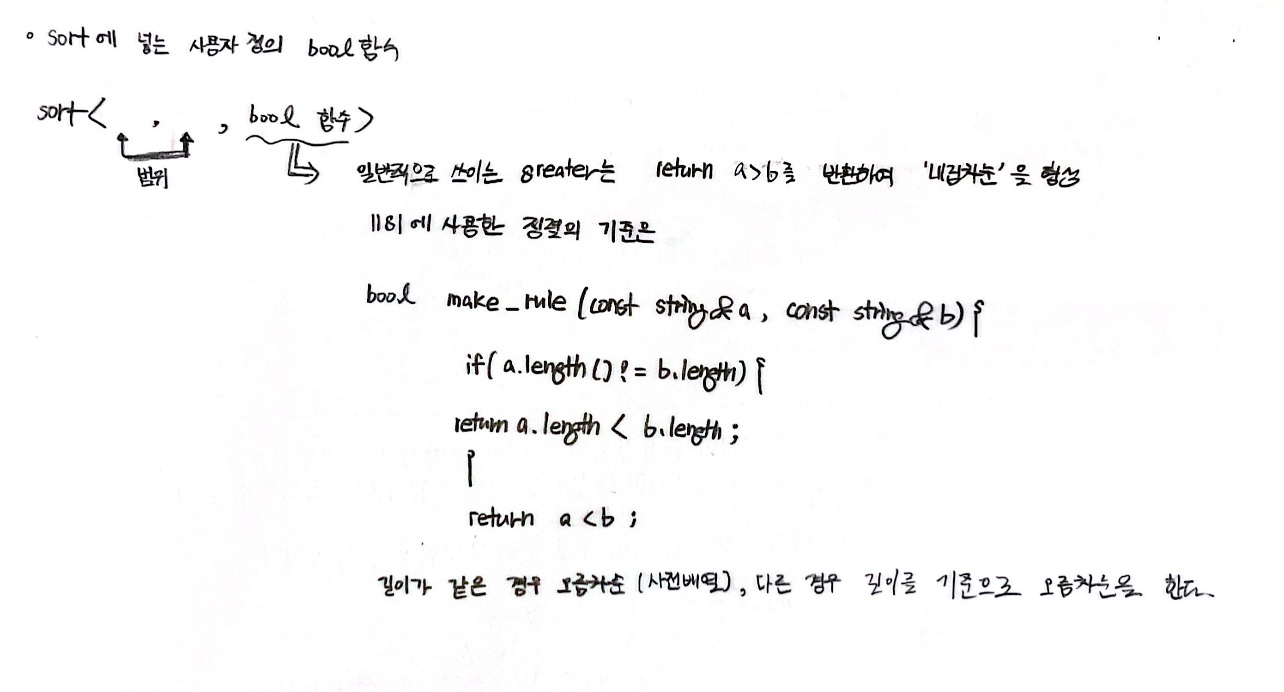 ° sort에 넣는 사용자 정의 bool 함수
sort< , , bool 함수>
범위
일반적으로 쓰이는 greater는 return a>b를 반환하여 '내림차순'을 형성
1181에 사용한 정렬의 기준은
bool make_rule (const string& a, const string& b) {
if( a.length() != b.length) {
return a.length < b.length ;
}
return a < b ;
길이가 같은 경우 오름차순 (사전배열), 다른 경우 길이를 기준으로 오름차순을 한다.